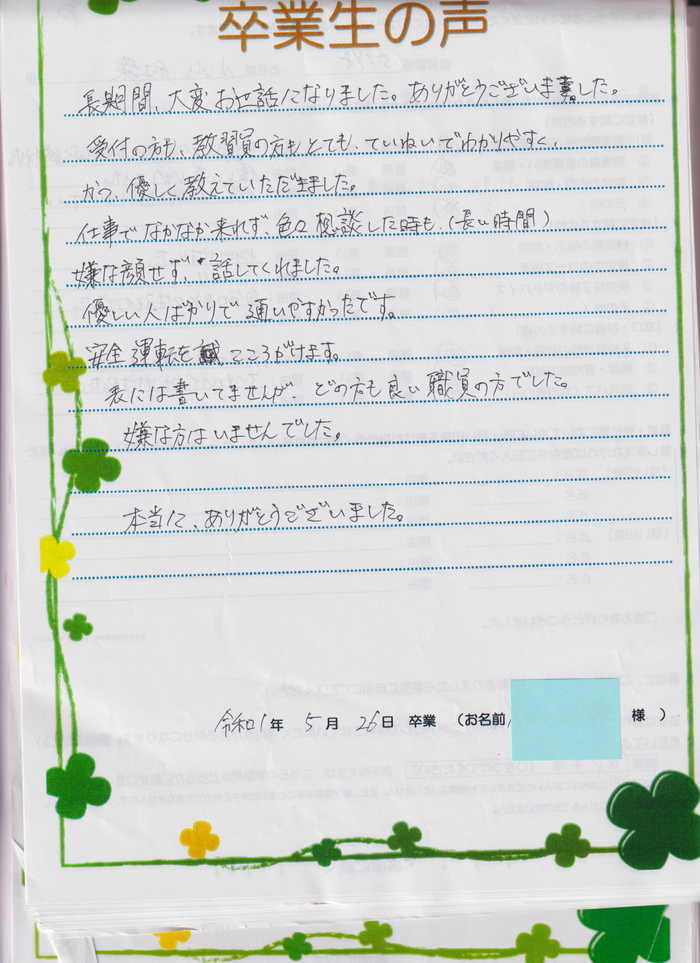 卒業生の声
長期間、大変お世話になりました。ありがとうございました。
受付の方も、教習員の方もとても、ていねいでわかりやすく、
かつ、優しく教えていただきました。
仕事でなかなか来れず、色々想談した時も、(長い時間)
嫌な顔せず、話してくれました。
優しい人ばかりで通いやすかったです。
安全運転をこころがけます。
表には書いてませんが、どの方も良い職員の方でした。
嫌な方はいませんでした。
本当に、ありがとうございました。
令和1年 5月 26日 卒業 (お名前 様 )